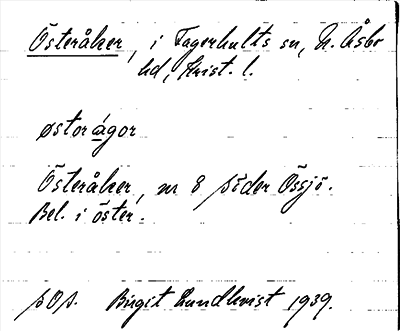 Österåker, i Fagerhults sn, N. Åsbo
hd, Krist. l.
østorågor
Österåker, nr 8 söder Össjö.
Bel. i öster.
sOs. Birgit Lundkvist 1939.